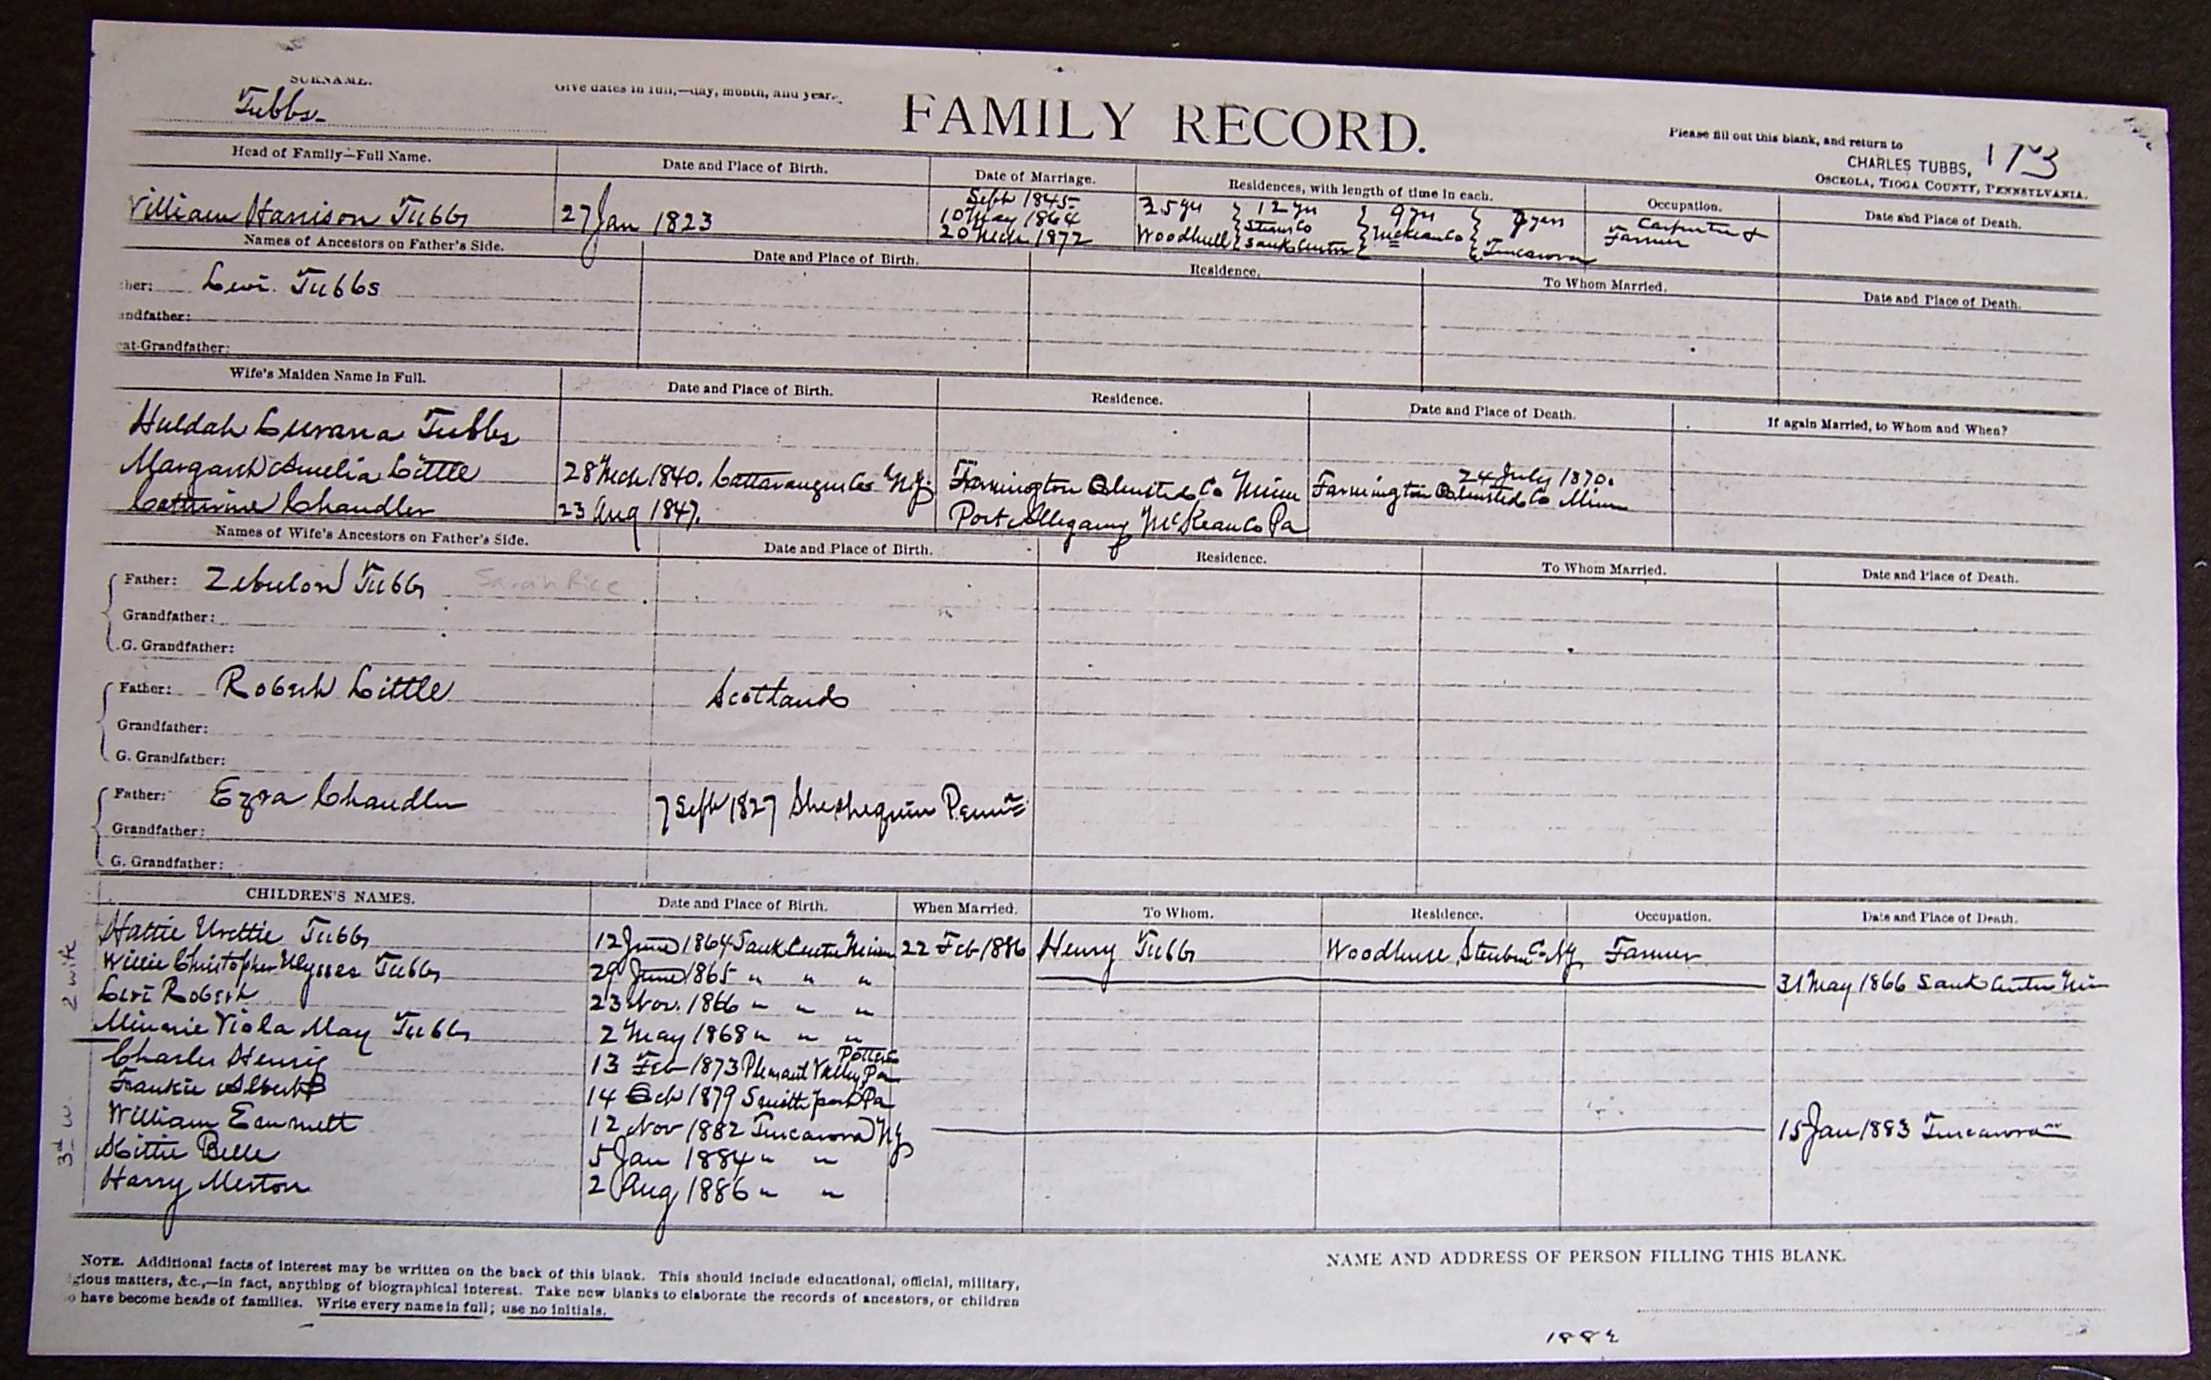 SURNAME.
Tubbs
Give dates in full,—day, month, and year.
FAMILY RECORD.
Please fill out this blank, and return to
CHARLES TUBBS, 173
OSCEOLA, TIOGA COUNTY, PENNSYLVANIA.
Head of Family—Full Name. Date and Place of Birth. Date of Marriage. Residences, with length of time in each. Occupation. Date and Place of Death.
William Harrison Tubbs 27 Jan 1823
Sept 1845
10 May 1864
20 Mch 1872
25 yrs 12 yrs 9 yrs 7 years
Woodhull Sauk Centre McKean Co Tuscarora
Stearns Co
Carpenter &
Farmer
Names of Ancestors on Father's Side. Date and Place of Birth. Residence. To Whom Married. Date and Place of Death.
ther: Levi Tubbs
andfather:
eat-Grandfather:
Wife's Maiden Name in Full. Date and Place of Birth. Residence. Date and Place of Death. If again Married, to Whom and When?
Huldah Lurana Tubbs
Margaret Amelia Little 28 Mch 1840. Cattaraugus Co N.Y. Farmington Olmsted Co Minn 24 July 1870. Farmington Olmsted Co Minn
Catherine Chandler 23 Aug 1847. Port Allegany McKean Co Pa
Names of Wife's Ancestors on Father's Side. Date and Place of Birth. Residence. To Whom Married. Date and Place of Death.
Father: Zebulon Tubbs Sarah Rice
Grandfather:
G. Grandfather:
Father: Robert Little Scotland
Grandfather:
G. Grandfather:
Father: Ezra Chandler 7 Sept 1827 Sheshequin Penna
Grandfather:
G. Grandfather:
CHILDREN'S NAMES. Date and Place of Birth. When Married. To Whom. Residence. Occupation. Date and Place of Death.
2 wife
Hattie Urettie Tubbs 12 June 1864 Sauk Centre Minn 22 Feb 1886 Henry Tubbs Woodhull Steuben Co NY Farmer
Willie Christopher Ulysses Tubbs 29 June 1865 " " " 31 May 1866 Sauk Centre Min
Levi Robert 23 Nov. 1866 " " "
Minnie Viola May Tubbs 2 May 1868 " " "
3rd w.
Charles Henry 13 Feb 1873 Pleasant Valley Potter Co Pa
Frankie Albert 14 Oct 1879 Smithport Pa
William Emmett 12 Nov 1882 Tuscarora NY 15 Jan 1883 Tuscarora
Mittie Belle 5 Jan 1884 " "
Harry Merton 2 Aug 1886 " "
NOTE. Additional facts of interest may be written on the back of this blank. This should include educational, official, military,
gious matters, &c.,—in fact, anything of biographical interest. Take new blanks to elaborate the records of ancestors, or children
o have become heads of families. Write every name in full; use no initials.
NAME AND ADDRESS OF PERSON FILLING THIS BLANK.